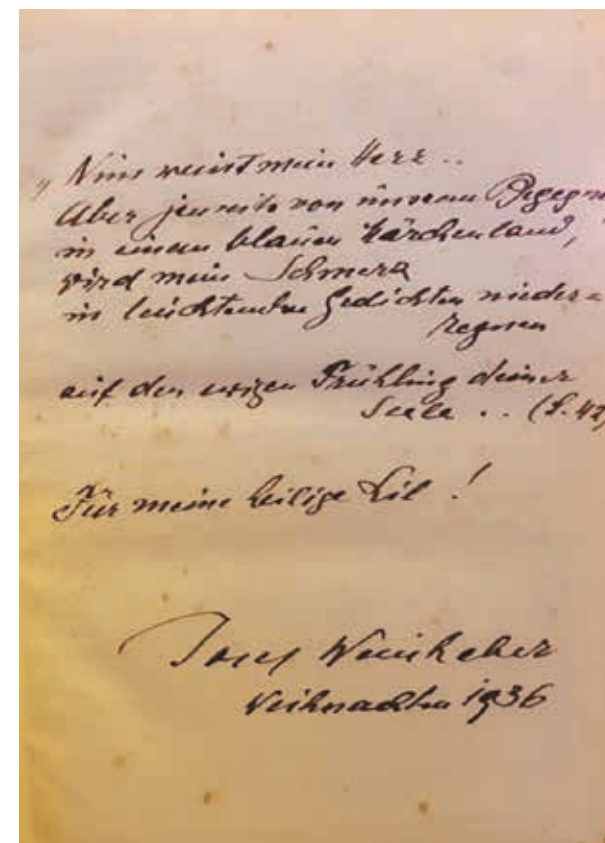 „Nun weint mein Herz ..
Aber jenseits von unserem Begegn
in einem blauen Märchenland,
wird mein Schmerz
in leuchtenden Gedichten nieder=
regnen
auf den ewigen Frühling deiner
Seele . . (S. 42)
Für meine heilige Lil !
Josef Weinheber
Weihnachten 1936